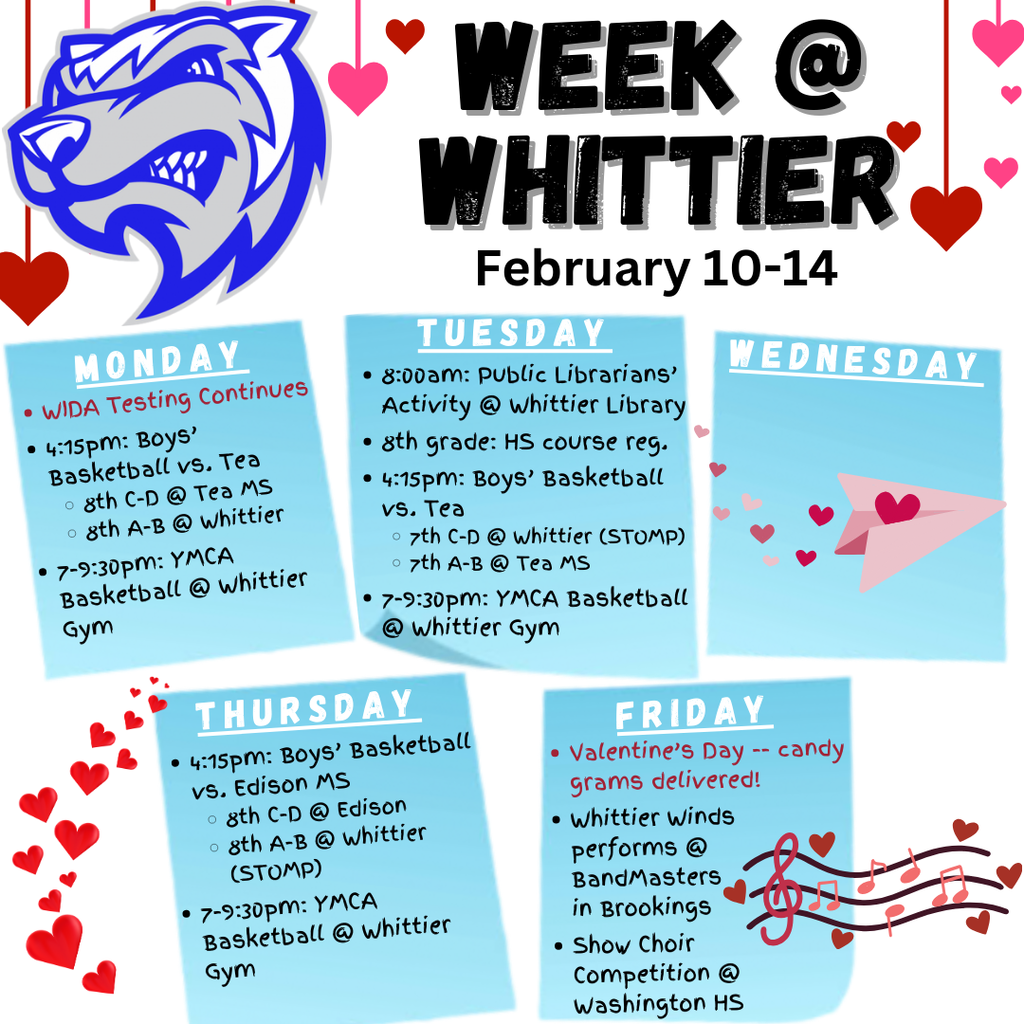 WEEK @
WHITTIER
February 10-14
MONDAY
• WIDA Testing Continues
• 4:15pm: Boys'
Basketball vs. Tea
○ 8th C-D @ Tea MS
○ 8th A-B @ Whittier
• 7-9:30pm: YMCA
Basketball @ Whittier
Gym
TUESDAY
• 8:00am: Public Librarians'
Activity @ Whittier Library
• 8th grade: HS course reg.
• 4:15pm: Boys' Basketball
vs. Tea
○ 7th C-D @ Whittier (STOMP)
○ 7th A-B @ Tea MS
• 7-9:30pm: YMCA Basketball
@ Whittier Gym
WEDNESDAY
THURSDAY
• 4:15pm: Boys' Basketball
vs. Edison MS
○ 8th C-D @ Edison
○ 8th A-B @ Whittier
(STOMP)
• 7-9:30pm: YMCA
Basketball @ Whittier
Gym
FRIDAY
• Valentine's Day -- candy
grams delivered!
• Whittier Winds
performs @
BandMasters
in Brookings
• Show Choir
Competition @
Washington HS